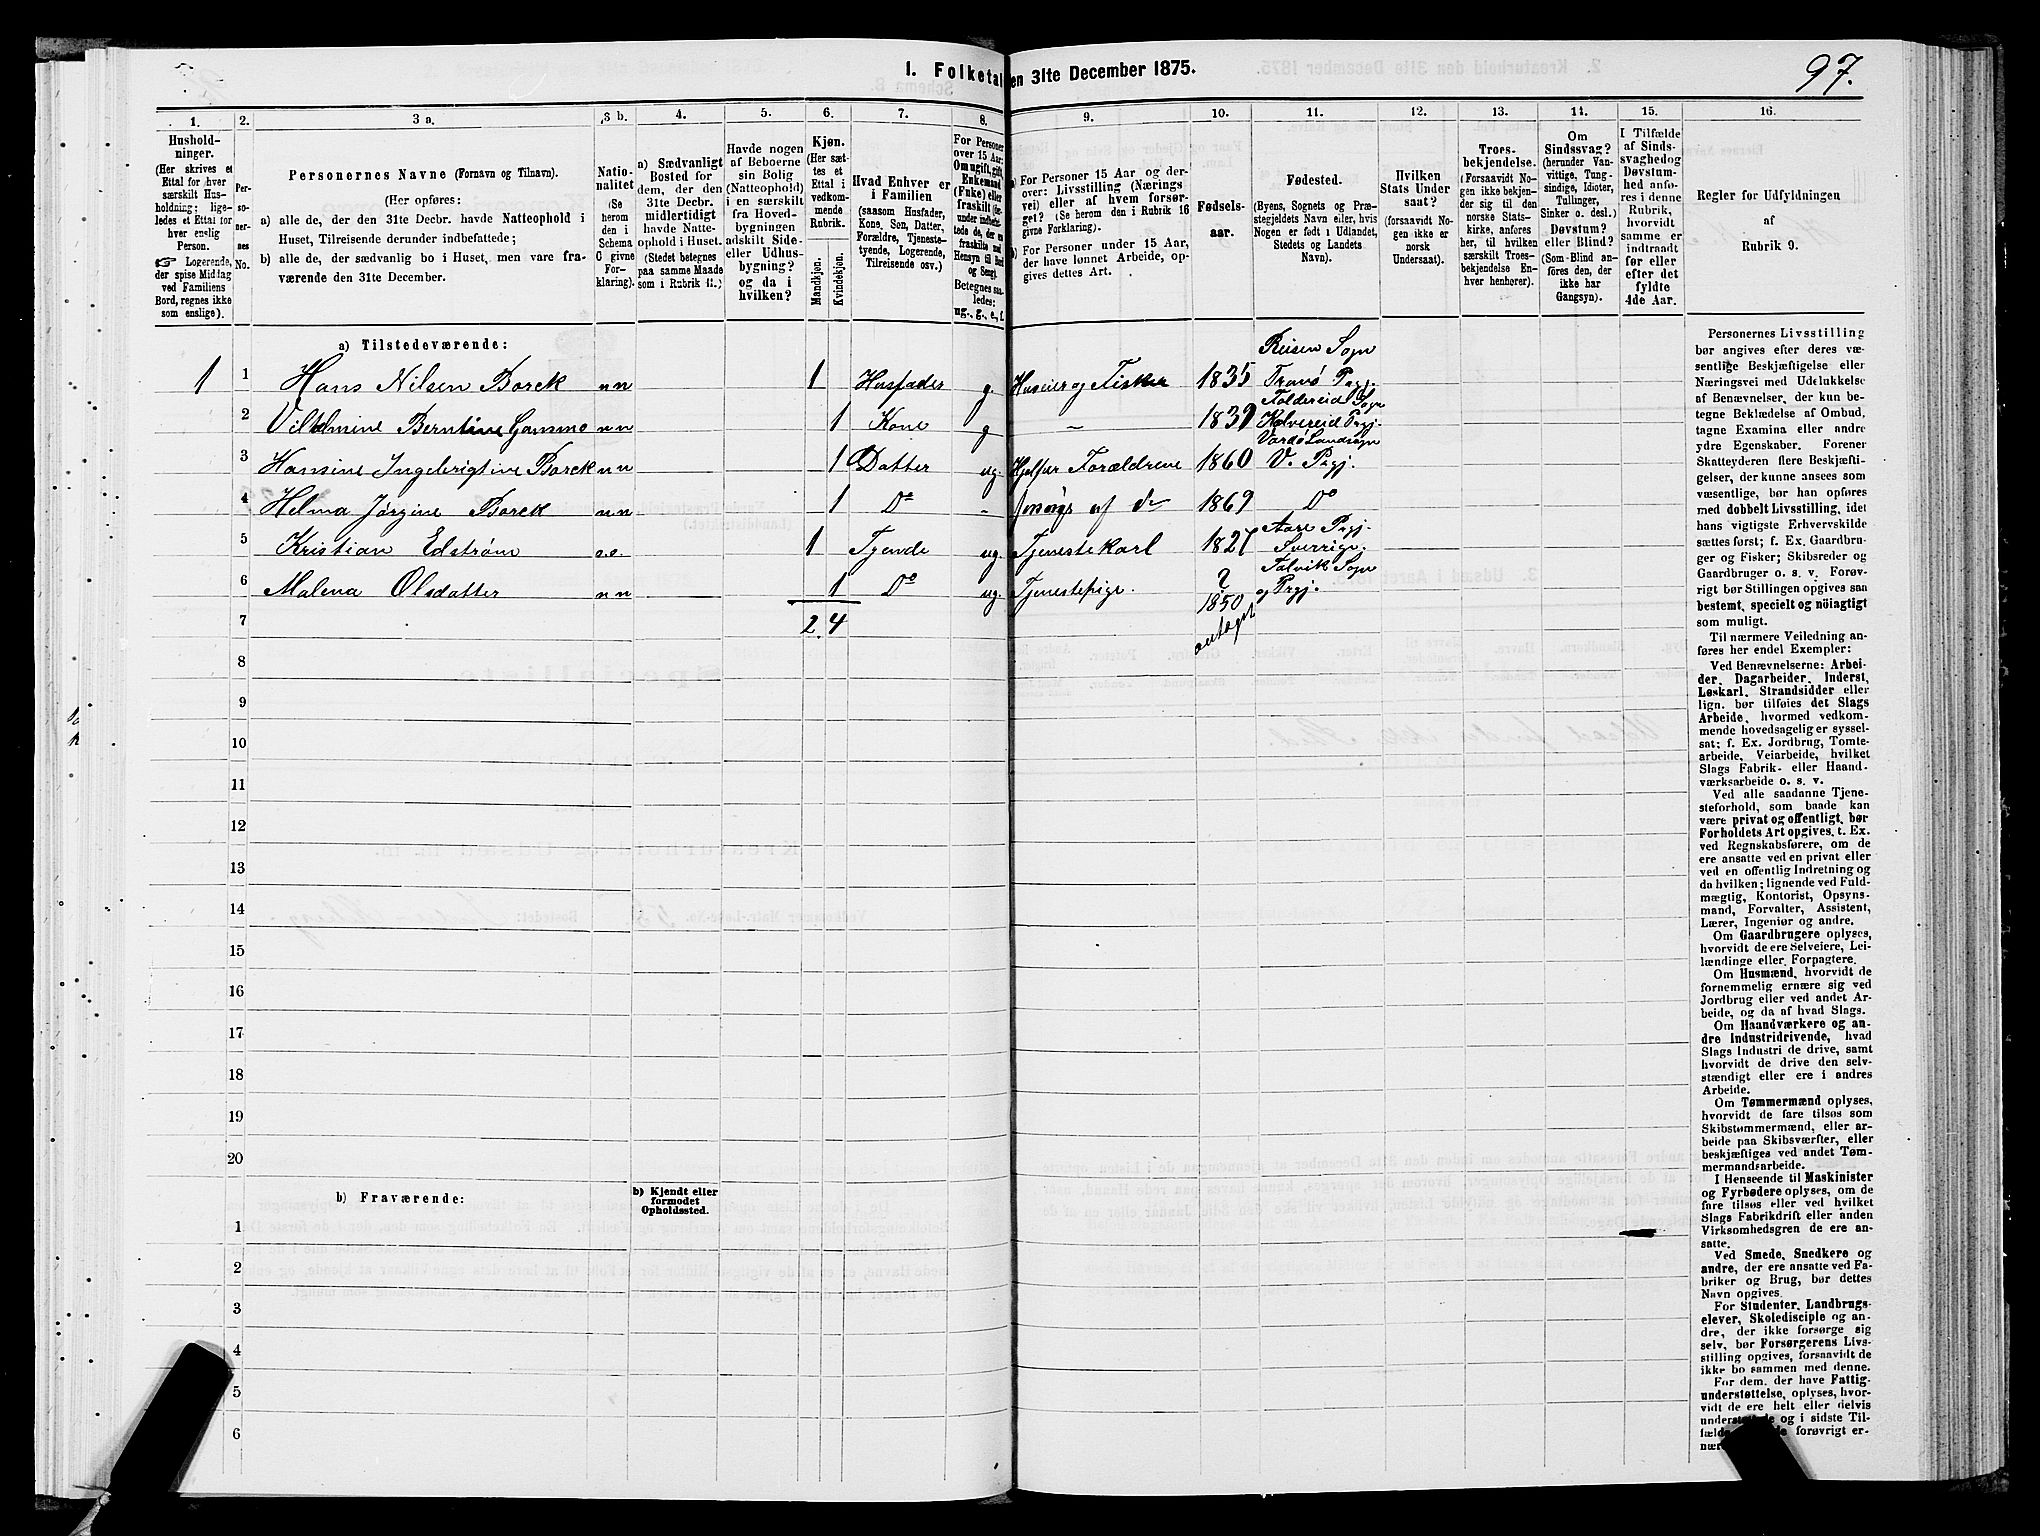 97.
1. Folketal
en 31te December 1875.
1.
Hushold-
ninger.
(Her skrives et
Ettal for hver
særskilt Hus-
holdning; lige-
ledes et Ettal for
hver enslig
Person.
☞ Logerende,
der spise Middag
ved Familiens
Bord, regnes ikke
som enslige).
2.
Per-
so-
ner-
nes
No.
3 a.
Personernes Navne (Fornavn og Tilnavn).
(Her opføres:
a) alle de, der den 31te Decbr. havde Natteophold i
Huset, Tilreisende derunder indbefattede;
b) alle de, der sædvanlig bo i Huset, men vare fra-
værende den 31te December.
3 b.
Natio-
nalitet
(Se
herom
den i
Schema
C givne
For-
klaring).
4.
a) Sædvanligt
Bosted for
dem, der den
31te Decbr.
midlertidigt
havde Natte-
ophold i Huset.
(Stedet betegnes
paa samme Maade
som i Rubrik 11.)
5.
Havde nogen
af Beboerne
sin Bolig
(Natteophold)
i en særskilt
fra Hoved-
bygningen
adskilt Side-
eller Udhus-
bygning?
og da i
hvilken?
6.
Kjøn.
(Her sæt-
tes et
Ettal i
vedkom-
mende
Rubrik.
Mandkjøn.
Kvindekjøn.
7.
Hvad Enhver er
i Familien
(saasom Husfader,
Kone, Søn, Datter,
Forældre, Tjeneste-
tyende, Logerende,
Tilreisende osv.)
8.
For Personer
over 15 Aar:
Om ugift, gift,
Enkemand
(Enke) eller
fraskilt
Betegnes saa-
ledes:
ug., g., e., f.
9.
a) For Personer 15 Aar og der-
over: Livsstilling (Nærings
vei) eller af hvem forsør-
get? (Se herom den i Rubrik 16
givne Forklaring).
b) For Personer under 15 Aar,
der have lønnet Arbeide, op-
gives dettes Art.
10.
Fødsels-
aar.
11.
Fødested.
(Byens, Sognets og Præ-
stegjeldets Navn eller, hvis
Nogen er født i Udlandet,
Stedets og Landets
Navn).
12.
Hvilken
Stats Under
saat?
(forsaavidt No-
gen ikke er
norsk
Undersaat).
13.
Troes-
bekjendelse.
(Forsaavidt No-
gen ikke bekjen-
der sig til den
norske Stats-
kirke, anføres
her, til hvilken
særskilt Troes-
bekjendelse En-
hver henhører).
14.
Om
Sindssvag?
(herunder Van-
vittige, Tung-
sindige, Idioter,
Tullinger,
Sinker o. desl.)
Døvstum?
eller Blind?
(Som Blind an-
føres den, der
ikke har
Gangsyn).
15.
I Tilfælde
af Sinds-
svaghed og
Døvstum-
hed anfø-
res i denne
Rubrik,
hvorvidt
samme er
indtraadt
før eller
efter det
fyldte
4de Aar.
16.
Regler for Udfyldningen
af
Rubrik 9.
a) Tilstedeværende:
1 1 Hans Nilsen Borck nn 1 Husfader g Huseier og Fisker 1835 Reisen Sogn
Tromsø Prgj.
2 Vilhelmine Berntine Gammo nn 1 Kone g – 1839 Foldereid Sogn
Kolvereid Prgj.
3 Hansine Ingebrigtine Borck nn 1 Datter ug. Hjelper Forældrene 1860 Vardø Landsogn
V. Prgj.
4 Helma Jørgine Borck nn 1 Do - forsørgs af do 1869 Do
5 Kristian Edstrøm o.o. 1 Tyende ug. Tjenestekarl 1827 Aare Prgj.
Sverrige.
6 Malena Olsdatter nn 1 Do ug. Tjenestepige. ? 1850 antagst Talvik Sogn
og Prgj.
7 2. 4
8
9
10
11
12
13
14
15
16
17
18
19
20
b) Fraværende:
b) Kjendt eller
formodet
Opholdssted.
1
2
3
4
5
6
Personernes Livsstilling
bør angives efter deres væ-
sentlige Beskjæftigelse eller
Næringsvei med Udelukkelse
af Benævnelser, der kun be-
tegne Beklædelse af Ombud,
tagne Examina eller andre
ydre Egenskaber. Forener
Skatteyderen flere Beskjæfti-
gelser, der kunne ansees som
væsentlige, bør han opføres
med dobbelt Livsstilling, idet
hans vigtigste Erhvervskilde
sættes først; f. Ex. Gaardbru-
ger og Fisker; Skibsreder og
Gaardbruger o. s. v. Forøv-
rigt bør Stillingen opgives saa
bestemt, specielt og nöiagtigt
som muligt.
Til nærmere Veiledning an-
føres her endel Exempler:
Ved Benævnelserne: Arbei-
der, Dagarbeider, Inderst,
Løskarl, Strandsidder eller
lign. bør tilføies det Slags
Arbeide, hvormed vedkom-
mende hovedsagelig er syssel-
sat; f. Ex. Jordbrug, Tomte-
arbeide, Veiarbeide, hvilket
Slags Fabrik- eller Haand-
værksarbeide o. s. v.
Ved alle saadanne Tjene-
steforhold, som baade kan
være privat og offentligt, bør
Forholdets Art opgives, t. Ex.
ved Regnskabsførere, om de
ere ansatte ved en privat eller
ved en offentlig Indretning og
da hvilken; lignende ved Fuld-
mægtig, Kontorist, Opsyns-
mand, Forvalter, Assistent,
Lærer, Ingeniør og andre.
Om Gaardbrugere oplyses,
hvorvidt de ere Selveiere, Lei-
lændinge eller Forpagtere.
Om Husmænd, hvorvidt de
fornemmelig ernære sig ved
Jordbrug eller ved andet Ar-
beide, og da af hvad Slags.
Om Haandværkere og an-
dre Industridrivende, hvad
Slags Industri de drive, samt
hvorvidt de drive den selv-
stændigt eller ere i andres
Arbeide.
Om Tømmermænd oplyses,
hvorvidt de fare tilsøs som
Skibstømmermænd, eller ar-
beide paa Skibsværfter, eller
beskjæftiges ved andet Tøm-
mermandsarbeide.
I Henseende til Maskinister
og Fyrbødere oplyses, om de
fare tilsøs eller ved hvilket
Slags Fabrikdrift eller anden
Virksomhedsgren de ere an-
satte.
Ved Smede, Snedkere og
andre, der ere ansatte ved Fa-
briker og Brug, bør dettes
Navn opgives.
For Studenter, Landbrugs-
elever, Skoledisciple og an-
dre, der ikke forsørge sig
selv, bør Forsørgerens Livs-
stilling opgives, forsaavidt de
ikke bo sammen med denne.
For dem, der have Fattig-
understøttelse, oplyses, hvor-
vidt de ere helt eller delvis
og i sidste Til-
forøvrigt er-